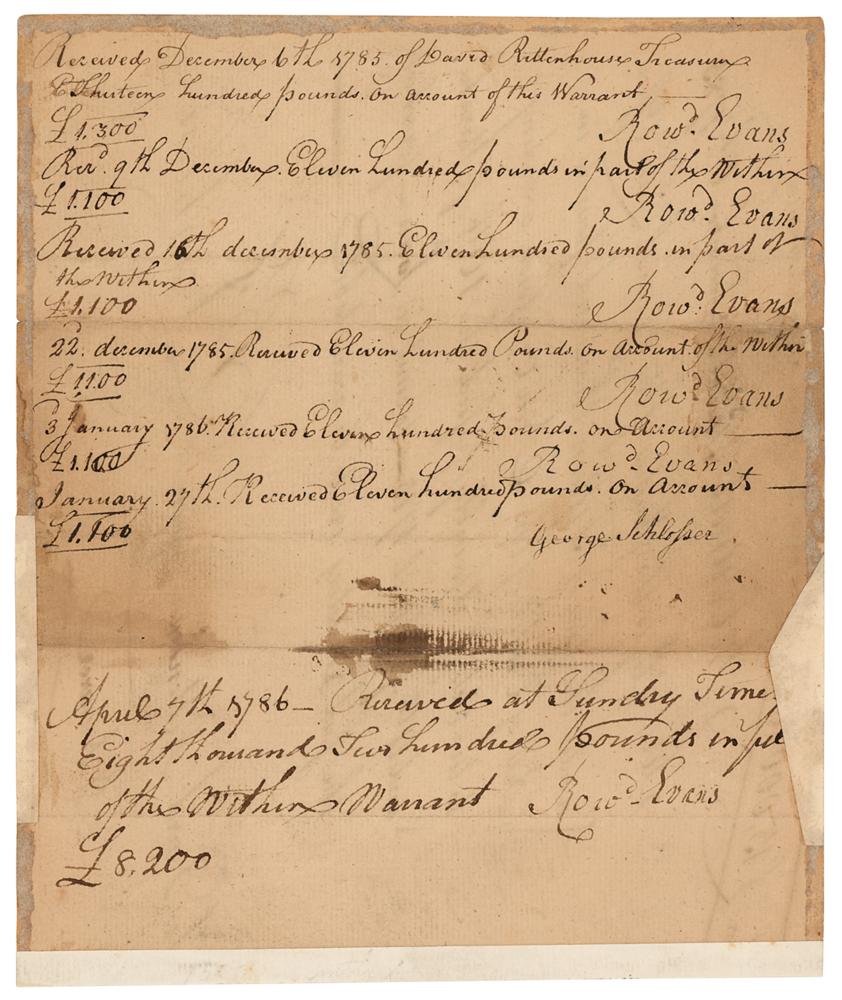 Received December 6th 1785. of David Rittenhouse Treasurer
Thirteen hundred pounds. On account of this Warrant
£1.300 Rowd. Evans
Recd. 9th December. Eleven hundred pounds in part of the Within
£1.100 Rowd. Evans
Received 16th december 1785. Eleven hundred pounds. in part of
the Within
£1.100 Rowd. Evans
22d. december 1785. Received Eleven hundred Pounds. on Account. of the Within
£1100 Rowd Evans
3d January 1786. Received Eleven hundred pounds. on Account
£1.100 Rowd. Evans
January. 27th. Received Eleven hundred pounds. On Account
£1.100
George Schlosser.
April 7th 1786 – Received at Sundry Time
Eight thousand Two hundred pounds in ful
of the Within Warrant Rowd. Evans
£8.200